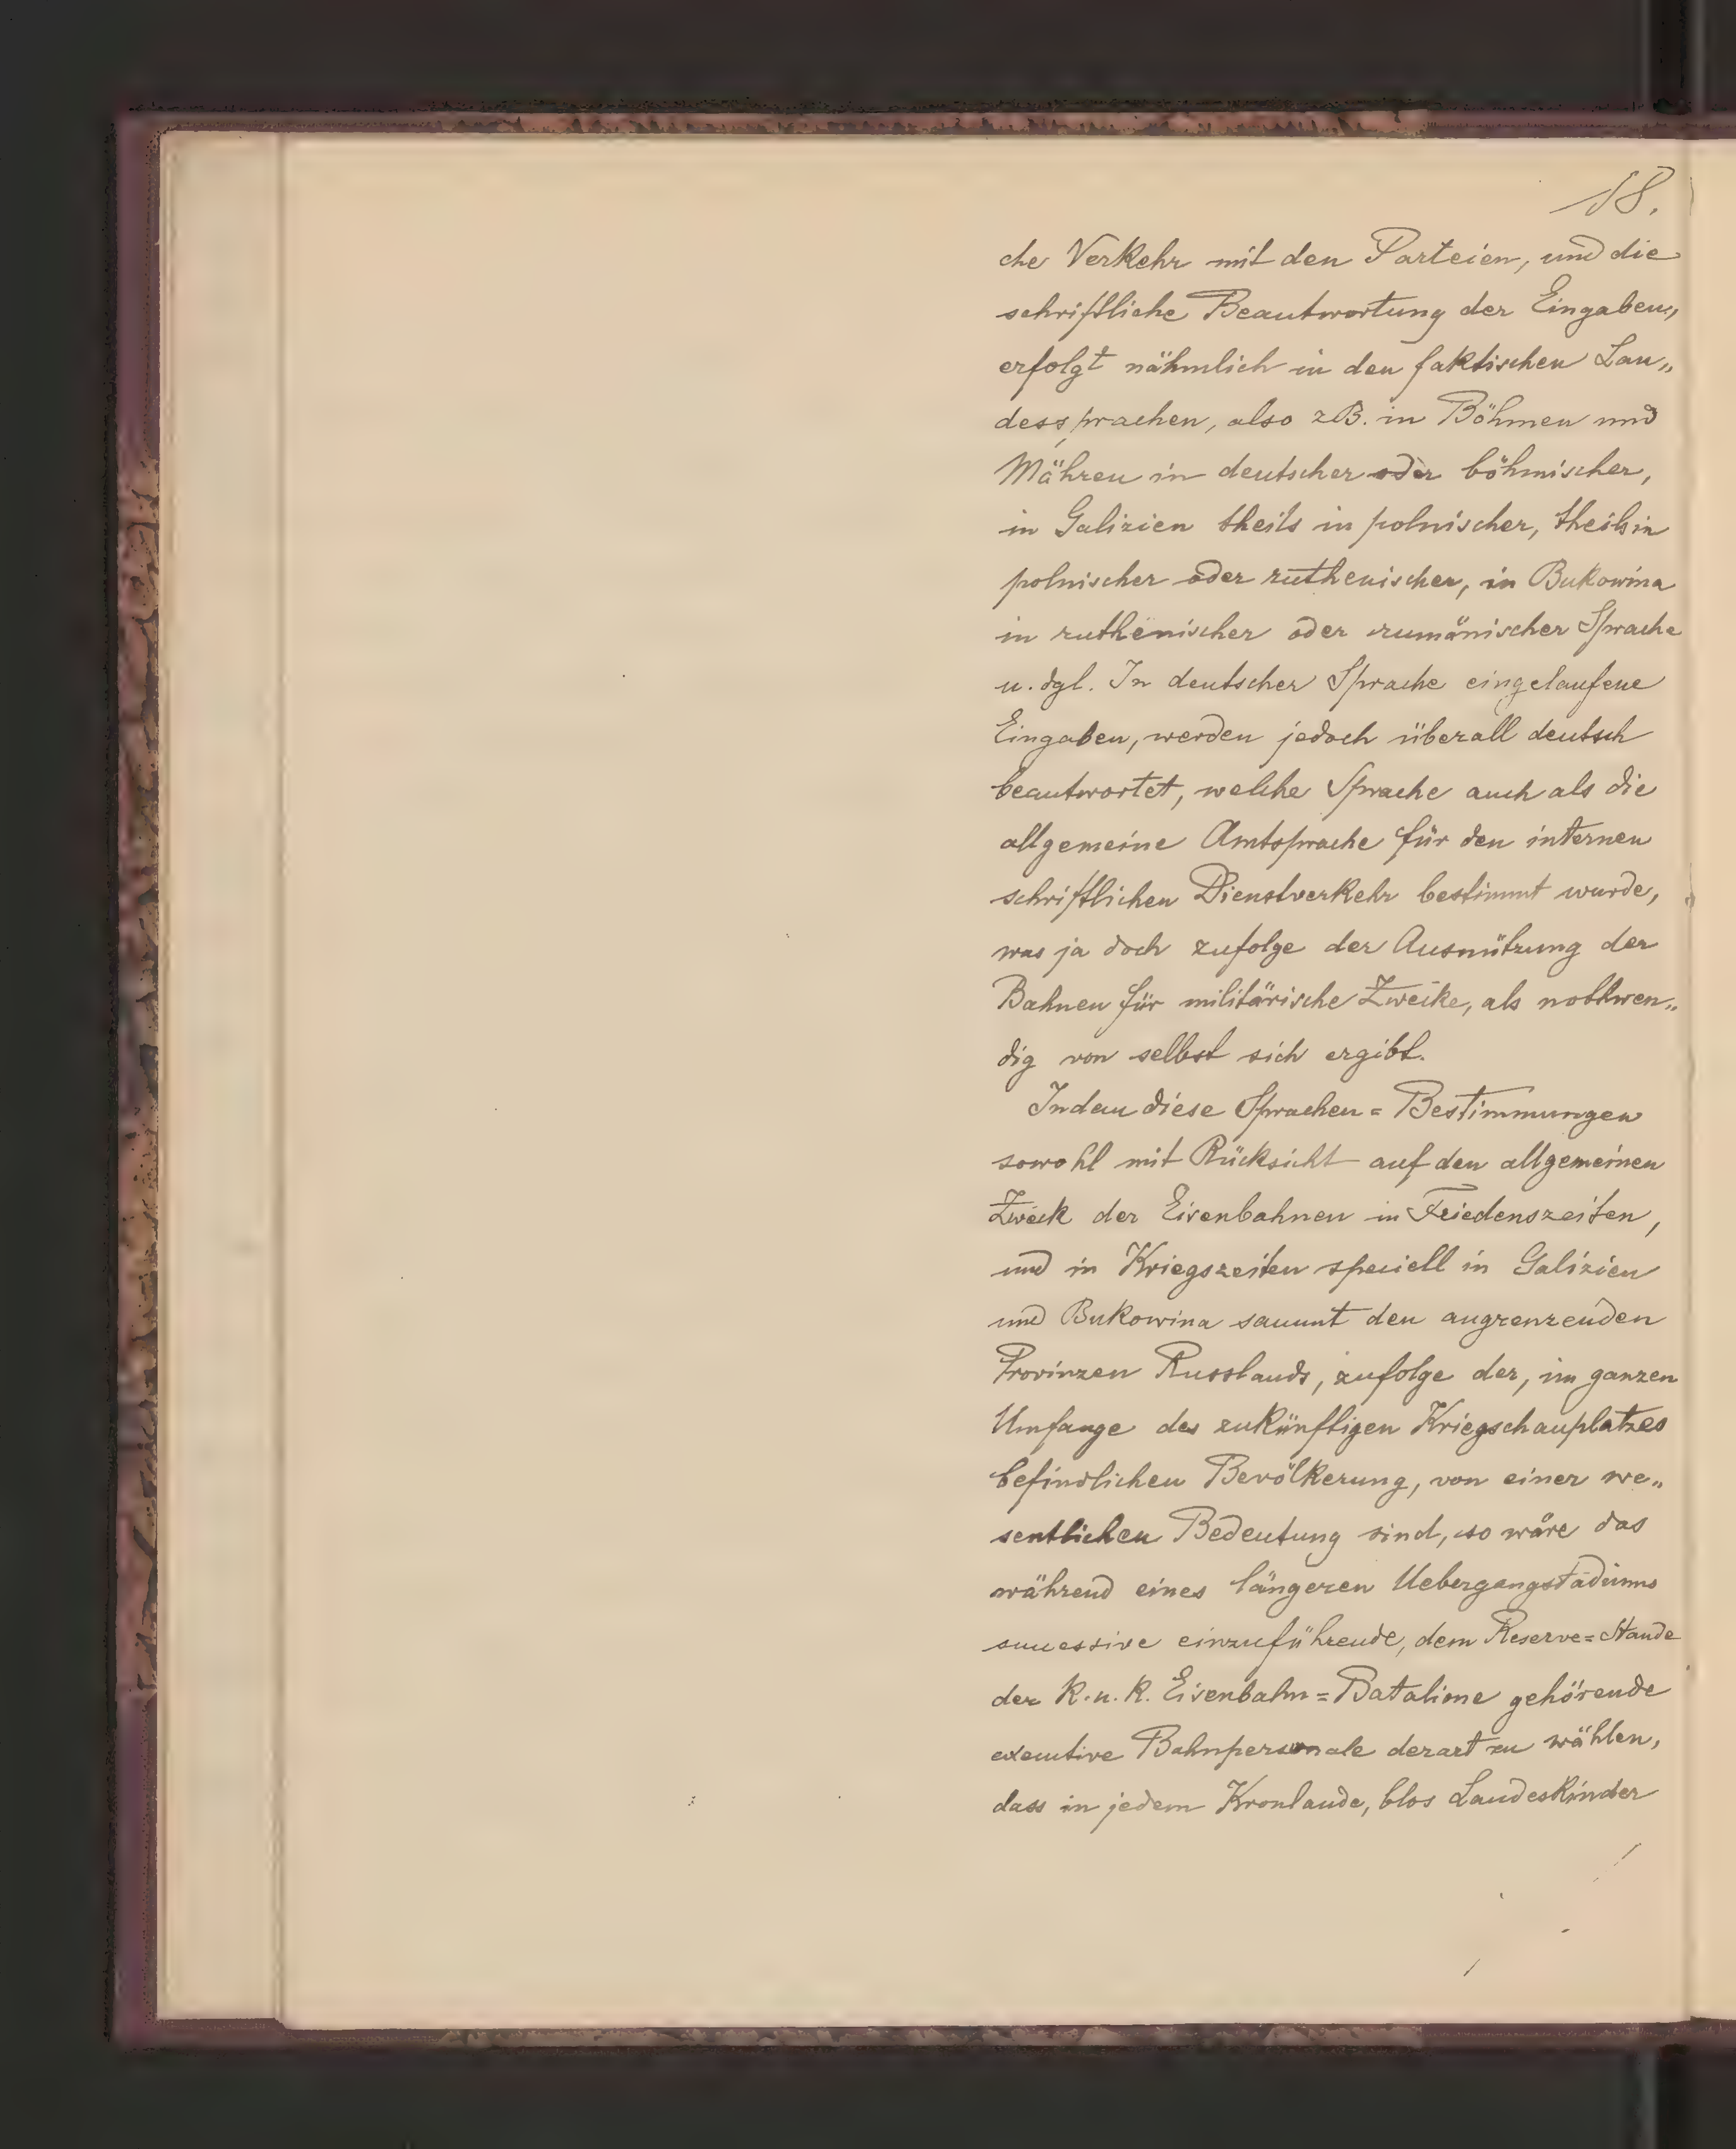 18.
che Verkehr mit den Parteien, und die
schriftliche Beantwortung der Eingaben,
erfolgt nähmlich in den faktischen Lan„
dessprachen, also z.B. in Böhmen und
Mähren in deutscher oder böhmischer,
in Galizien theils in polnischer, theils in
polnischer oder ruthenischer, in Bukowina
in ruthenischer oder rumänischer Sprache
u. dgl. In deutscher Sprache eingelaufene
Eingaben, werden jedoch überall deutsch
beantwortet, welche Sprache auch als die
allgemeine Amtsprache für den internen
schriftlichen Dienstverkehr bestimmt wurde,
was ja doch zufolge der Ausnützung der
Bahnen für militärische Zwecke, als nothwen„
dig von selbst sich ergibt.
Indem diese Sprachen=Bestimmungen
sowohl mit Rücksicht auf den allgemeinen
Zweck der Eisenbahnen in Friedenszeiten,
und in Kriegszeiten speciell in Galizien
und Bukowina sammt den angrenzenden
Provinzen Russlands, zufolge der, im ganzen
Umfange des zukünftigen Kriegschauplatzes
befindlichen Bevölkerung, von einer we„
sentlichen Bedeutung sind, so wäre das
während eines längeren Uebergangstadiums
successive einzuführende, dem Reserve=Stande
der K.u.K. Eisenbahn=Batalione gehörende
executive Bahnpersonale derart zu wählen,
dass in jedem Kronlande, blos Landeskinder